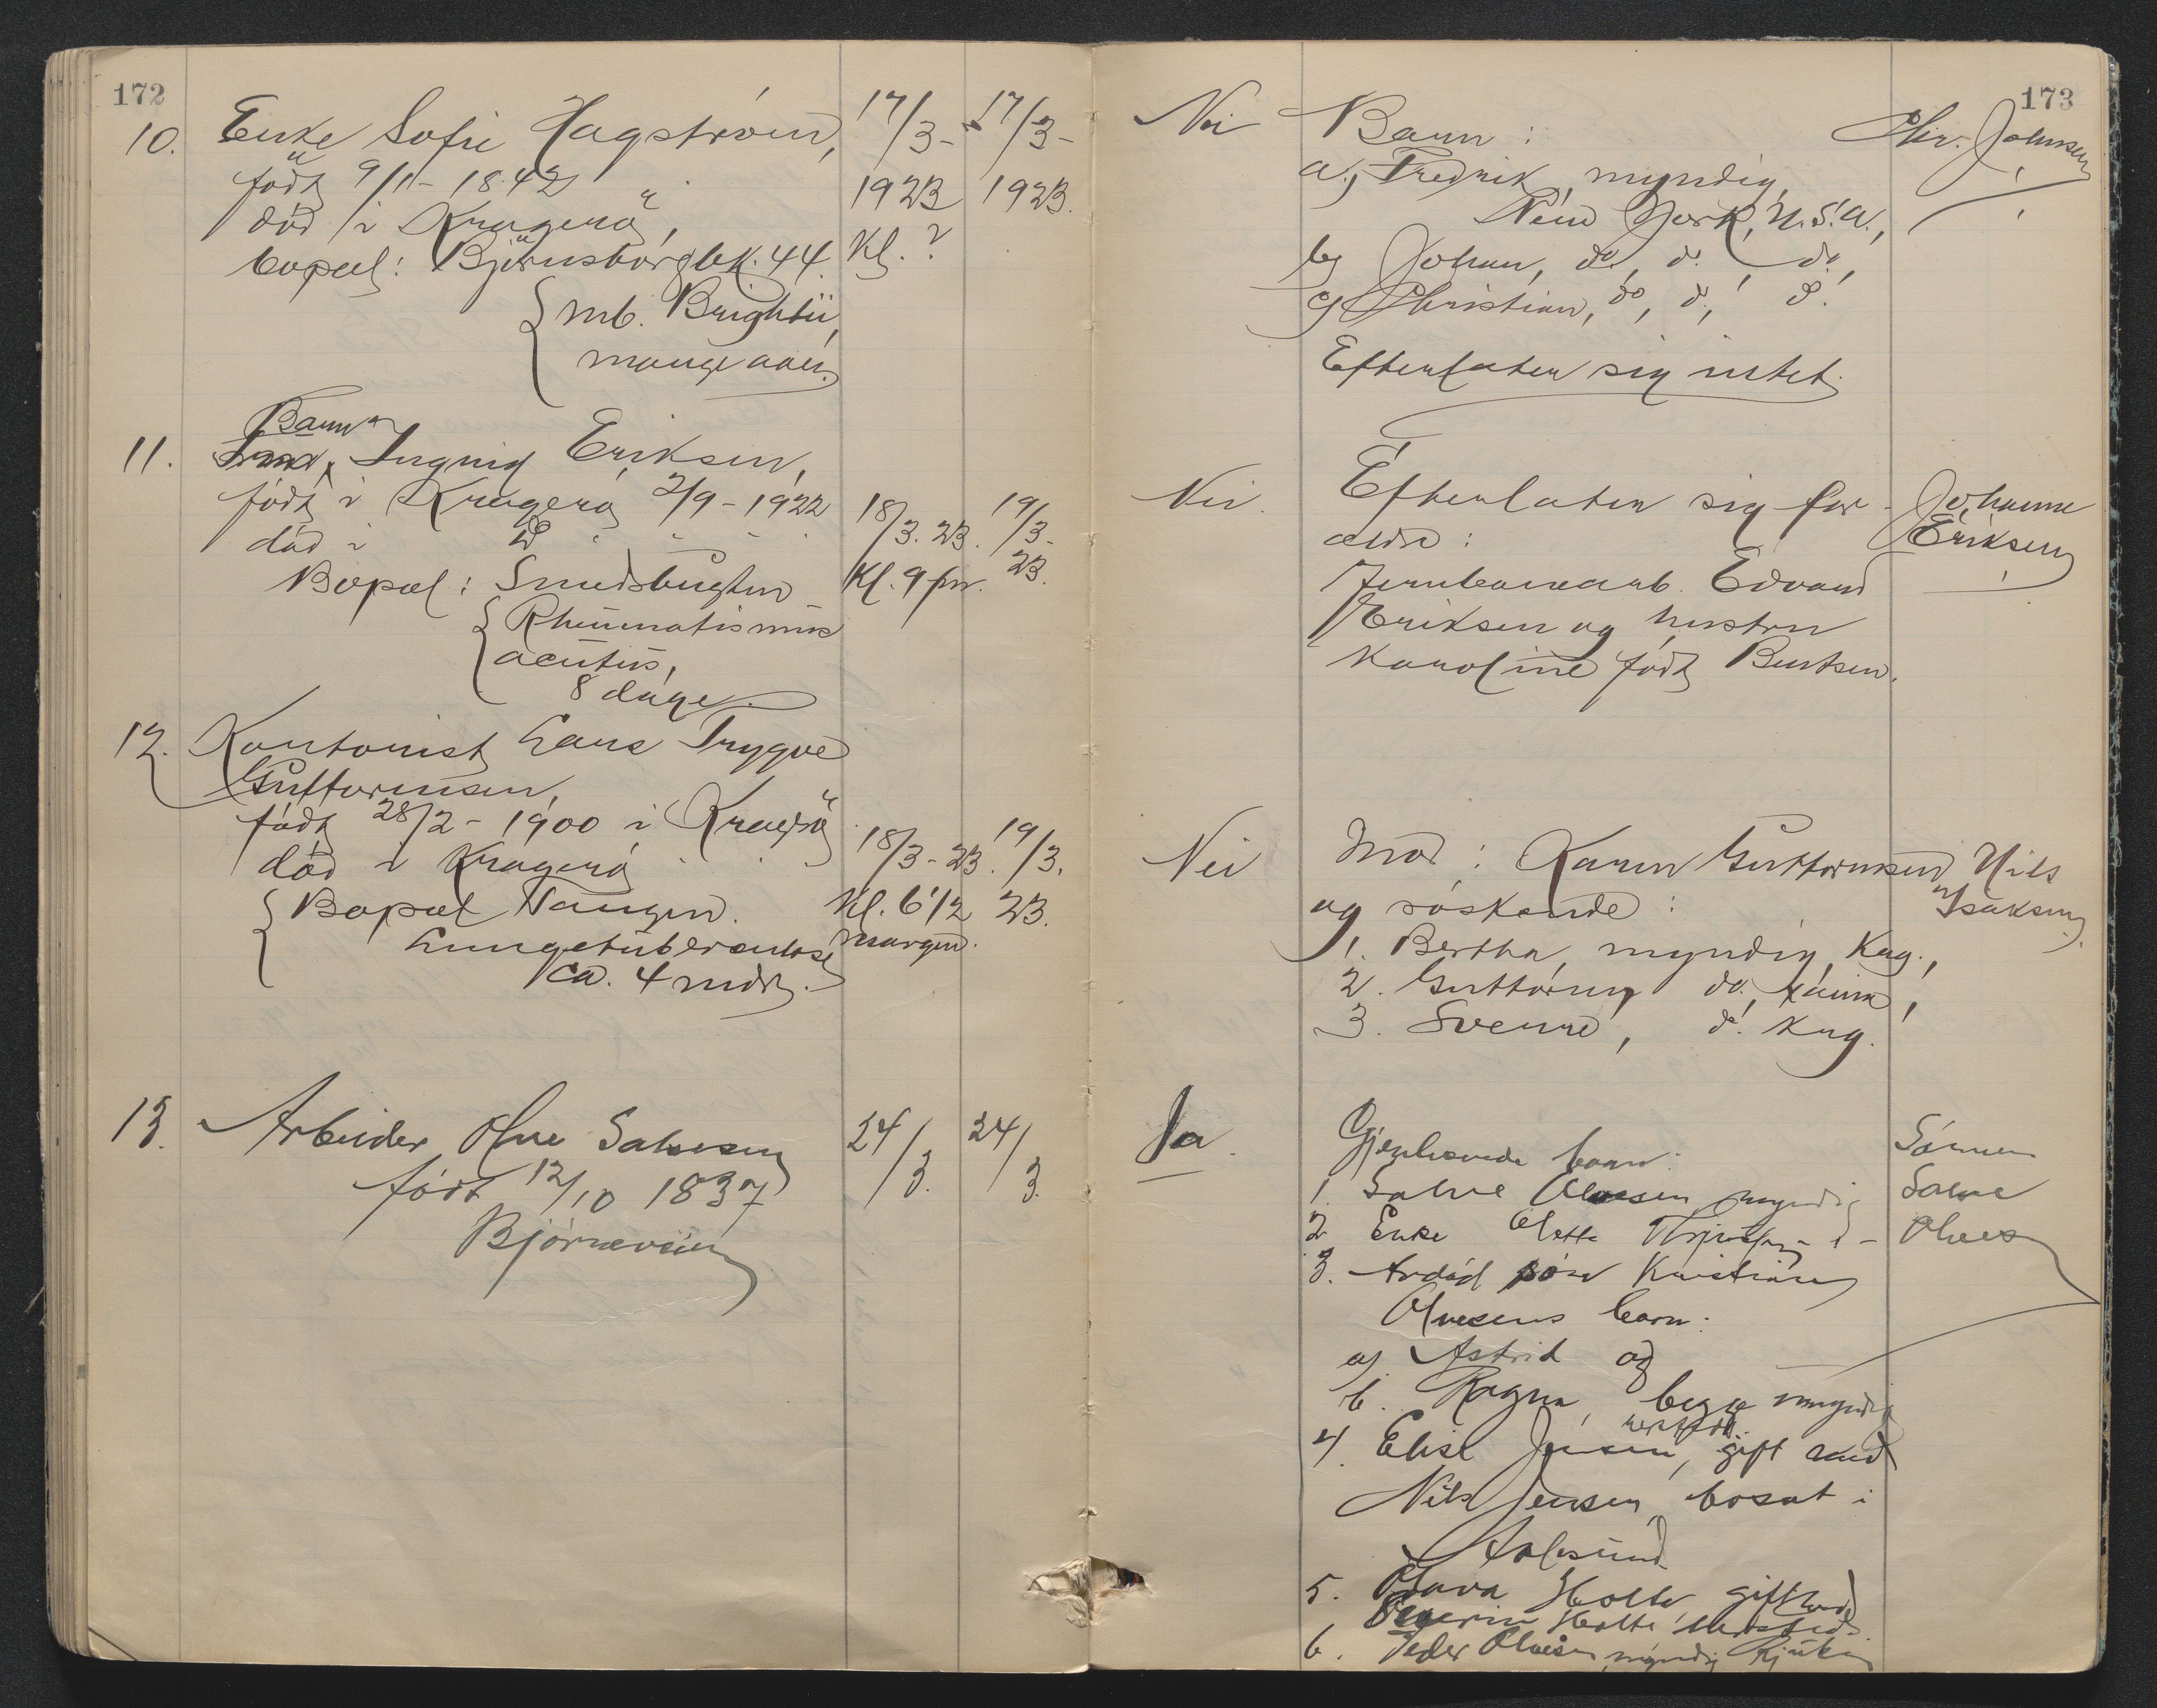 172
10. Enke Sofie Hagstrøm,
født 9/11-1842
død i Kragerø,
bopæl: Bjørnsborgbk. 44.
mb. Brightii,
mange aar.
17/3-
1923
Kl. ?
17/3-
1923.
Barn
11. Ingrid Eriksen,
født i Kragerø 2/9-1922
død i do
Bopæl: Smedsbugten
Rheumatismus
acutus,
8 dage.
18/3. 23.
Kl. 9 fm.
19/3-
23.
12. Kontorist Hans Trygve
Guttormsen,
født 28/2-1900 i Kragerø
død i Kragerø
Bopæl Tangen.
Lungetuberculose
ca. 4 mdr.
18/3-23.
Kl. 6 1/2
morgen.
19/3.
23.
13. Arbeider Olve Salvesen
født 12/10 1837
Bjørneveien
24/3.
24/3.
173
Nei
Barn:
a, Fredrik, myndig,
New York, U.S.A.,
b, Johan, do, do, do,
c, Christian, do, do, do.
Efterlater sig intet.
Chr. Johnsen
Nei.
Efterlater sig for-
ældre:
Jernbanearb. Edvard
Eriksen og hustru
Karoline født Berntsen.
Johanne
Eriksen
Nei
Mor: Karen Guttormsen
og søskende:
1. Bertha, myndig, Krag.,
2. Guttorm do.,
3. Sverre, do. Krag.
Nils
Isaksen.
Ja.
Gjenlevende barn:
1. Salve Olvesen myndig
2. Enke Olette
3. Avdød søn Kristian
Olvesens barn:
a. Astrid og
b. Ragna, begge myndig
4. Elise Jensen, gift med
Nils Jensen, bosat i
Aalesund
5. Olava Holte, gift med
Severin Holte
6. Peder Olvesen, myndig Rjukan
Sønnen
Salve
Olves